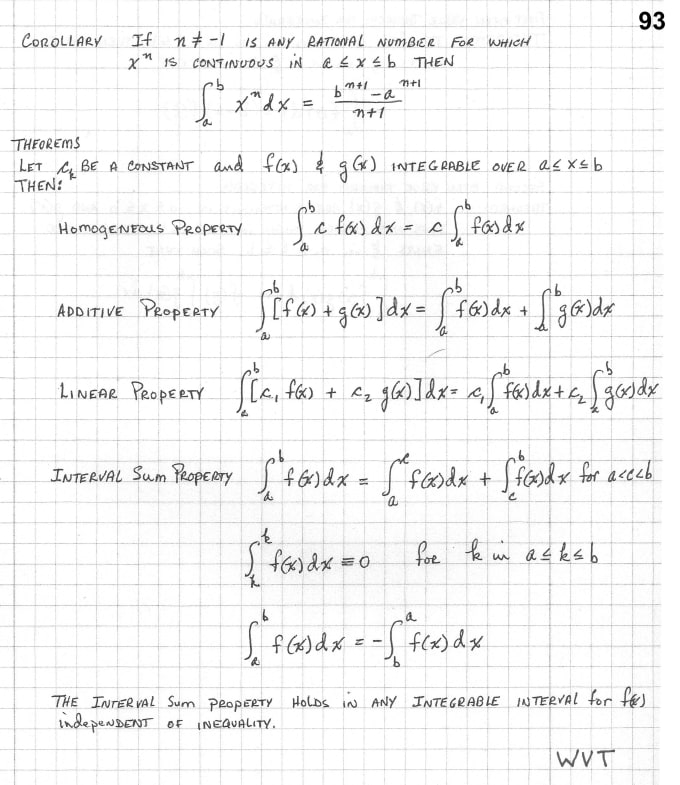 93
COROLLARY If n ≠ -1 IS ANY RATIONAL NUMBER FOR WHICH
xⁿ IS CONTINUOUS IN a ≤ x ≤ b THEN
∫ₐᵇ xⁿ dx = (bⁿ⁺¹ - aⁿ⁺¹)/(n+1)
THEOREMS
LET cₖ BE A CONSTANT and f(x) & g(x) INTEGRABLE OVER a ≤ x ≤ b
THEN:
HOMOGENEOUS PROPERTY ∫ₐᵇ c f(x) dx = c ∫ₐᵇ f(x) dx
ADDITIVE PROPERTY ∫ₐᵇ [f(x) + g(x)] dx = ∫ₐᵇ f(x) dx + ∫ₐᵇ g(x) dx
LINEAR PROPERTY ∫ₐᵇ [c₁ f(x) + c₂ g(x)] dx = c₁ ∫ₐᵇ f(x) dx + c₂ ∫ₐᵇ g(x) dx
INTERVAL SUM PROPERTY ∫ₐᵇ f(x) dx = ∫ₐᶜ f(x) dx + ∫꜀ᵇ f(x) dx for a<c<b
∫ₖᵏ f(x) dx ≡ 0 for k in a ≤ k ≤ b
∫ₐᵇ f(x) dx = - ∫_b^a f(x) dx
THE INTERVAL SUM PROPERTY HOLDS IN ANY INTEGRABLE INTERVAL for f(x)
independENT OF INEQUALITY.
WVT